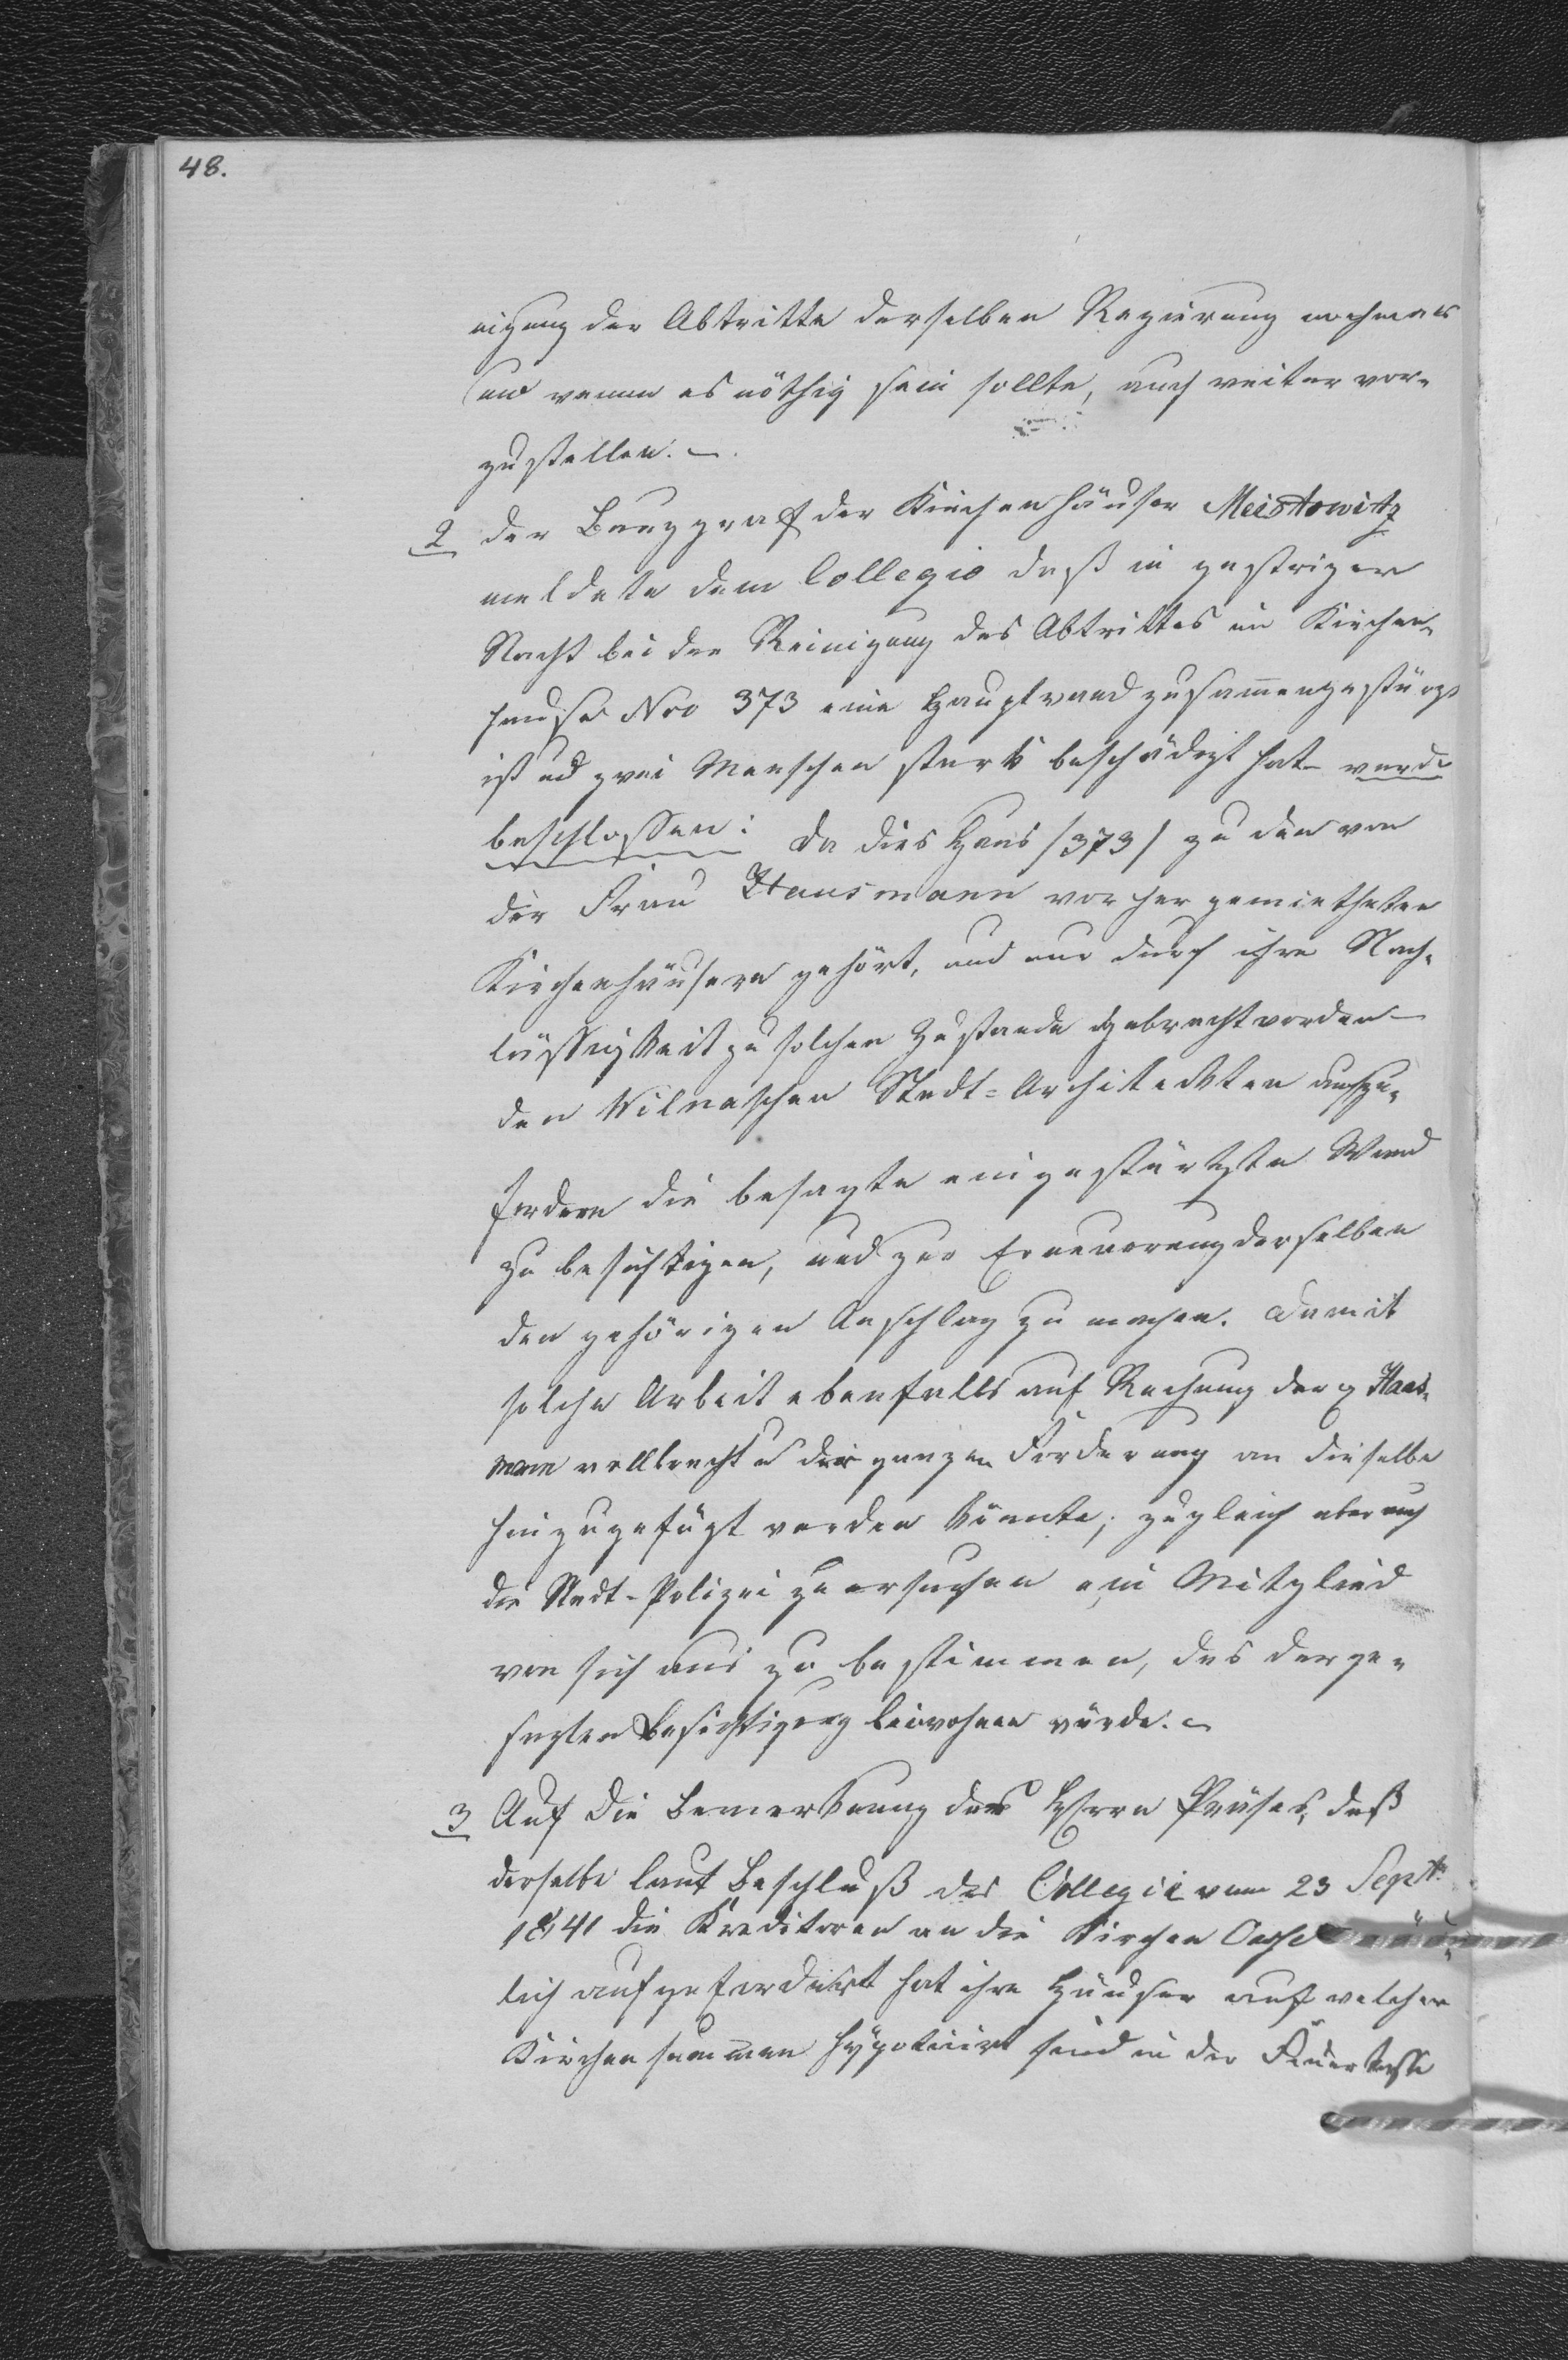 48.
nigung der Abtritte derselben Regierung nochmals
und wenn es nöthig sein sollte, auch weiter vor-
zustellen. –
2 Der Burggraf der Kirchenhäuser Meistowitz
meldete dem Collegio daß in gestriger
Nacht bei der Reinigung des Abtrittes im Kirchen-
hause Nro 373 eine Hauptwand zusammengestürzt
ist und zwei Menschen stark beschädigt hat – wurde
beschlossen: Da dies Haus /373/ zu den von
der Frau Hausmann vorher gemietheten
Kirchenhäusern gehört, und nur durch ihre Nach-
lässigkeit zu solchem Zustande gebracht worden –
den Wilnaschen Stadt-Architekten aufzu-
fordern die besagte eingestürzte Wand
zu besichtigen, und zur Erneuerung derselben
den gehörigen Anschlag zu machen. Damit
solche Arbeit ebenfalls auf Rechnung der Haus-
mann vollbracht u der ganzen Forderung an dieselbe
hinzugefügt werden könnte; zugleich aber auch
die Stadt-Polizei zu ersuchen ein Mitglied
von sich aus zu bestimmen, das der ge-
sagten Besichtigung beiwohnen würde. –
3 Auf die Bemerkung des Herrn Präses, daß
derselbe laut Beschluß des Collegii vom 23 Septr
1841 die Kreditoren an die Kirchen Casse
lich aufgefordert hat ihre Häuser auf welchen
Kirchensummen hypoticirt sind in der Feuerkasse